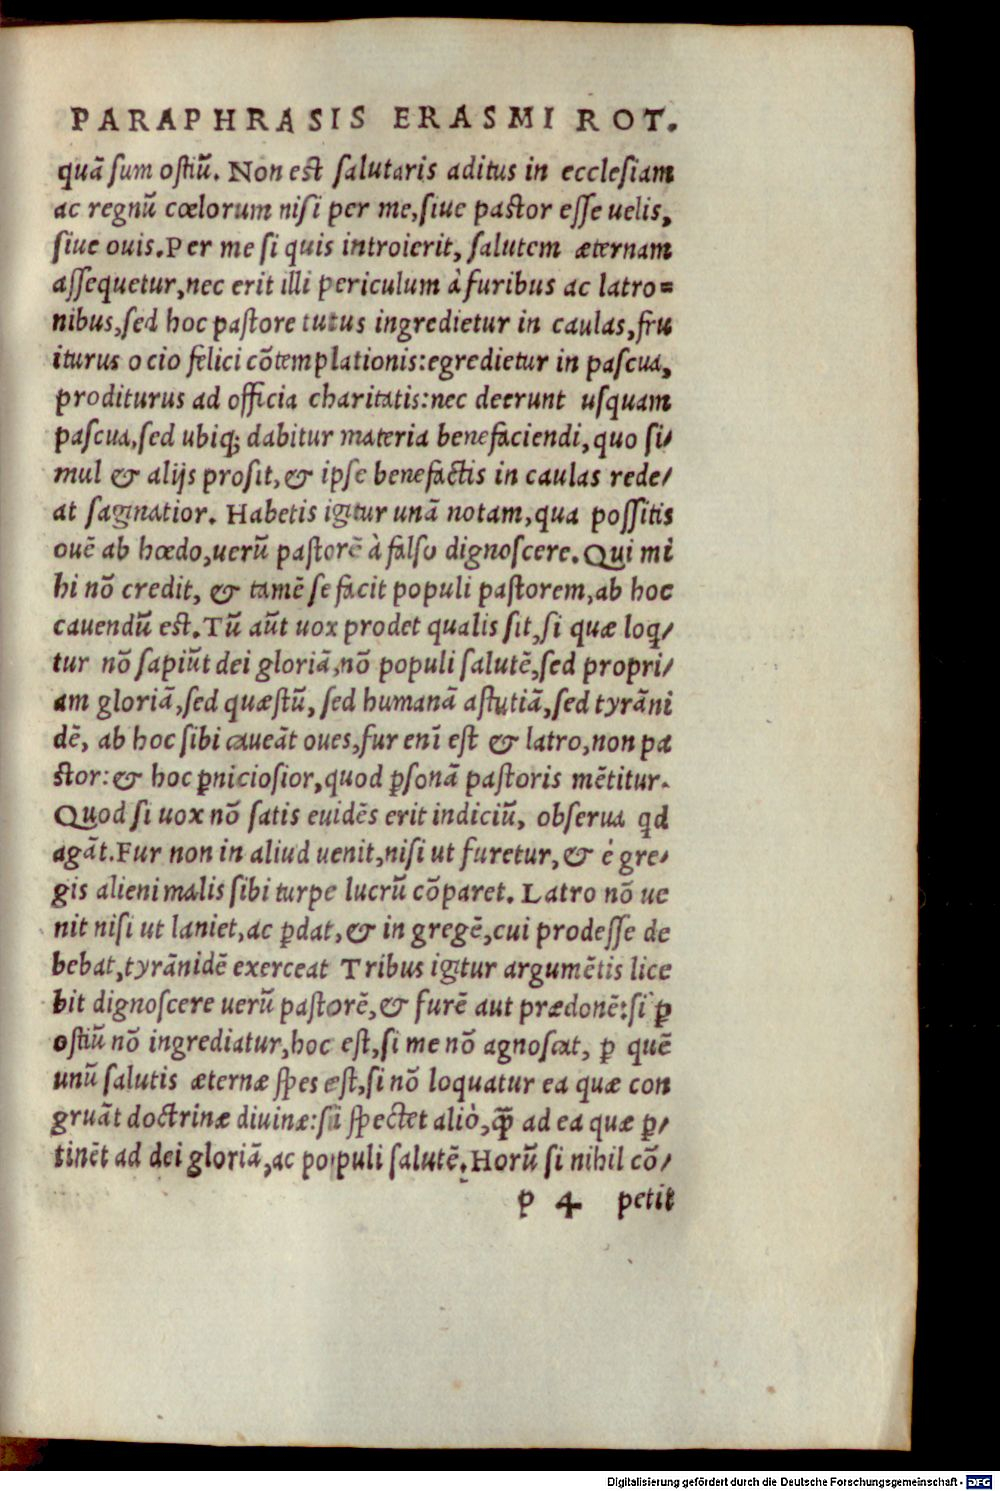 PARAPHRASIS ERASMI ROT.
quã sum ostiũ. Non est salutaris aditus in ecclesiam
ac regnũ cœlorum nisi per me, siue pastor esse uelis,
siue ouis. Per me si quis introierit, salutem æternam
assequetur, nec erit illi periculum à furibus ac latro=
nibus, sed hoc pastore tutus ingredietur in caulas, fru
iturus ocio felici cõtemplationis: egredietur in pascua,
proditurus ad officia charitatis: nec deerunt usquam
pascua, sed ubiq; dabitur materia benefaciendi, quo si/
mul & alijs prosit, & ipse benefactis in caulas rede/
at saginatior. Habetis igitur unã notam, qua possitis
ouẽ ab hœdo, uerũ pastorẽ à falso dignoscere. Qui mi
hi nõ credit, & tamẽ se facit populi pastorem, ab hoc
cauendũ est. Tũ aũt uox prodet qualis sit, si quæ loq̃/
tur nõ sapiũt dei gloriã, nõ populi salutẽ, sed propri/
am gloriã, sed quæstũ, sed humanã astutiã, sed tyrãni
dẽ, ab hoc sibi caueãt oues, fur enĩ est & latro, non pa
stor: & hoc ꝑniciosior, quod ꝑsonã pastoris mẽtitur.
Quod si uox nõ satis euidẽs erit indiciũ, obserua qd
agãt. Fur non in aliud uenit, nisi ut furetur, & è gre/
gis alieni malis sibi turpe lucrũ cõparet. Latro nõ ue
nit nisi ut laniet, ac ꝑdat, & in gregẽ, cui prodesse de
bebat, tyrãnidẽ exerceat Tribus igitur argumẽtis lice
bit dignoscere uerũ pastorẽ, & furẽ aut prædonẽ: si ꝑ
ostiũ nõ ingrediatur, hoc est, si me nõ agnoscat, ꝑ quẽ
unũ salutis æternæ spes est, si nõ loquatur ea quæ con
gruãt doctrinæ diuinæ: sĩ spectet aliò, q̃ꝫ ad ea quæ ꝑ/
tinẽt ad dei gloriã, ac populi salutẽ. Horũ si nihil cõ/
p 4 petit
Digitalisierung gefördert durch die Deutsche Forschungsgemeinschaft - DFG